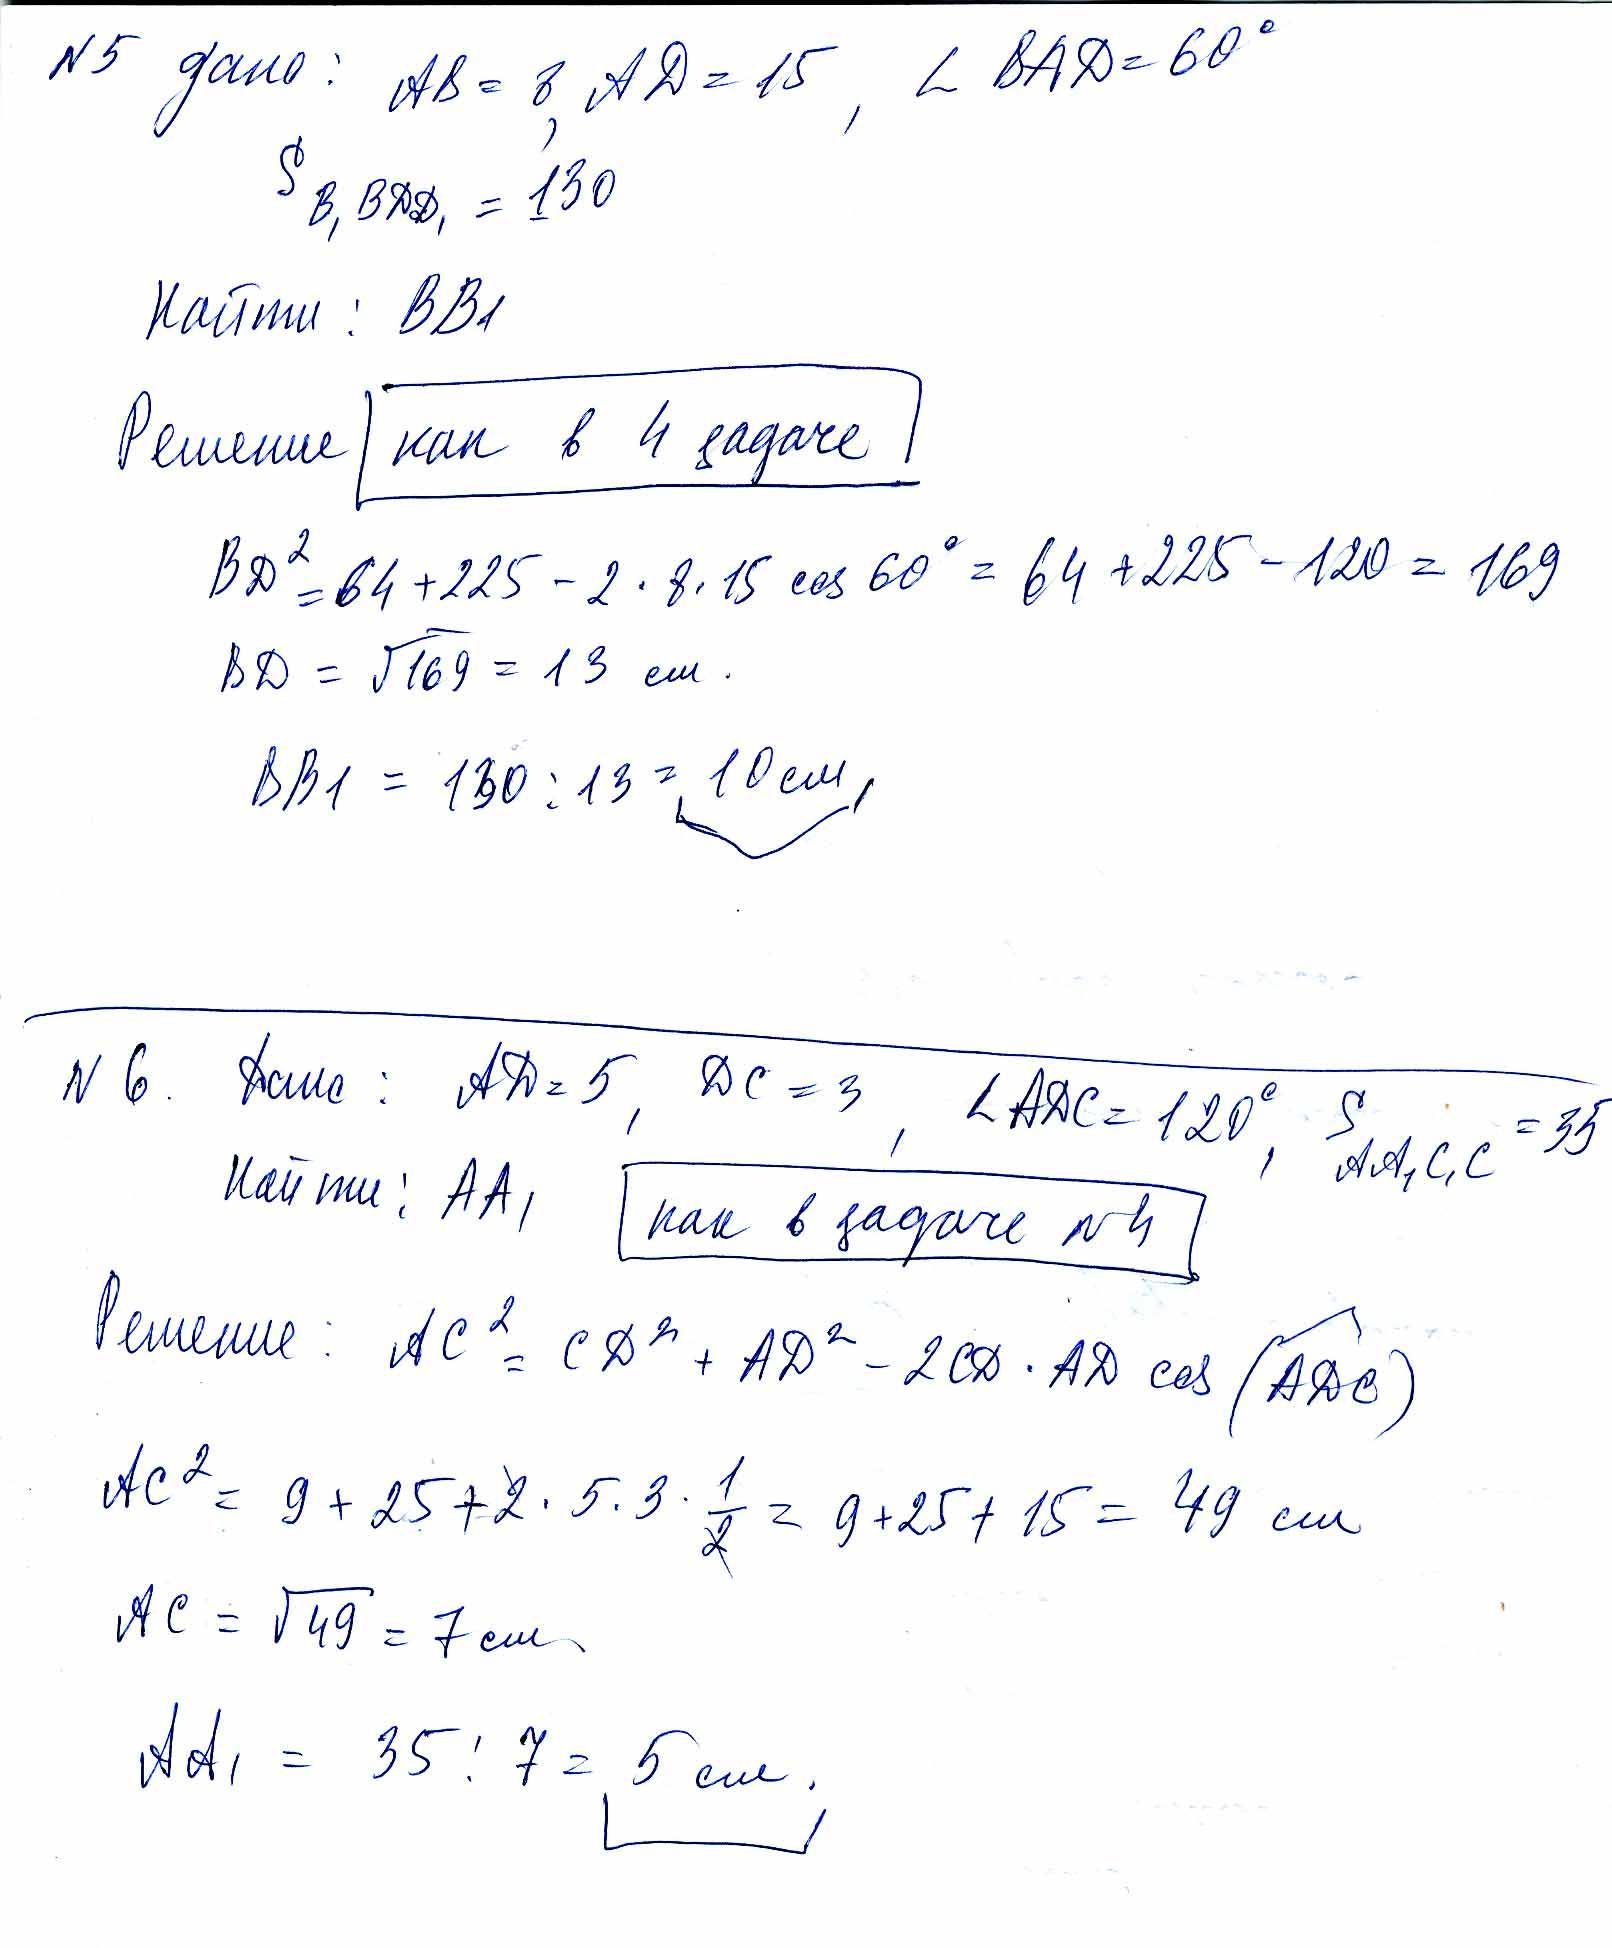 N5 дано: AB = 8, AD = 15, ∠ BAD = 60°
S B₁BDD₁ = 130
Найти: BB1
Решение как в 4 задаче
BD² = 64 + 225 - 2 · 8 · 15 cos 60° = 64 + 225 - 120 = 169
BD = √169 = 13 см.
BB1 = 130 : 13 = 10 см,
N 6. Дано: AD = 5, DC = 3, ∠ADC = 120°, S AA₁C₁C = 35
Найти: AA₁ как в задаче N4
Решение: AC² = CD² + AD² - 2CD · AD cos (ADC)
AC² = 9 + 25 + 2 · 5 · 3 · 1/2 = 9 + 25 + 15 = 49 см
AC = √49 = 7 см
AA₁ = 35 : 7 = 5 см.